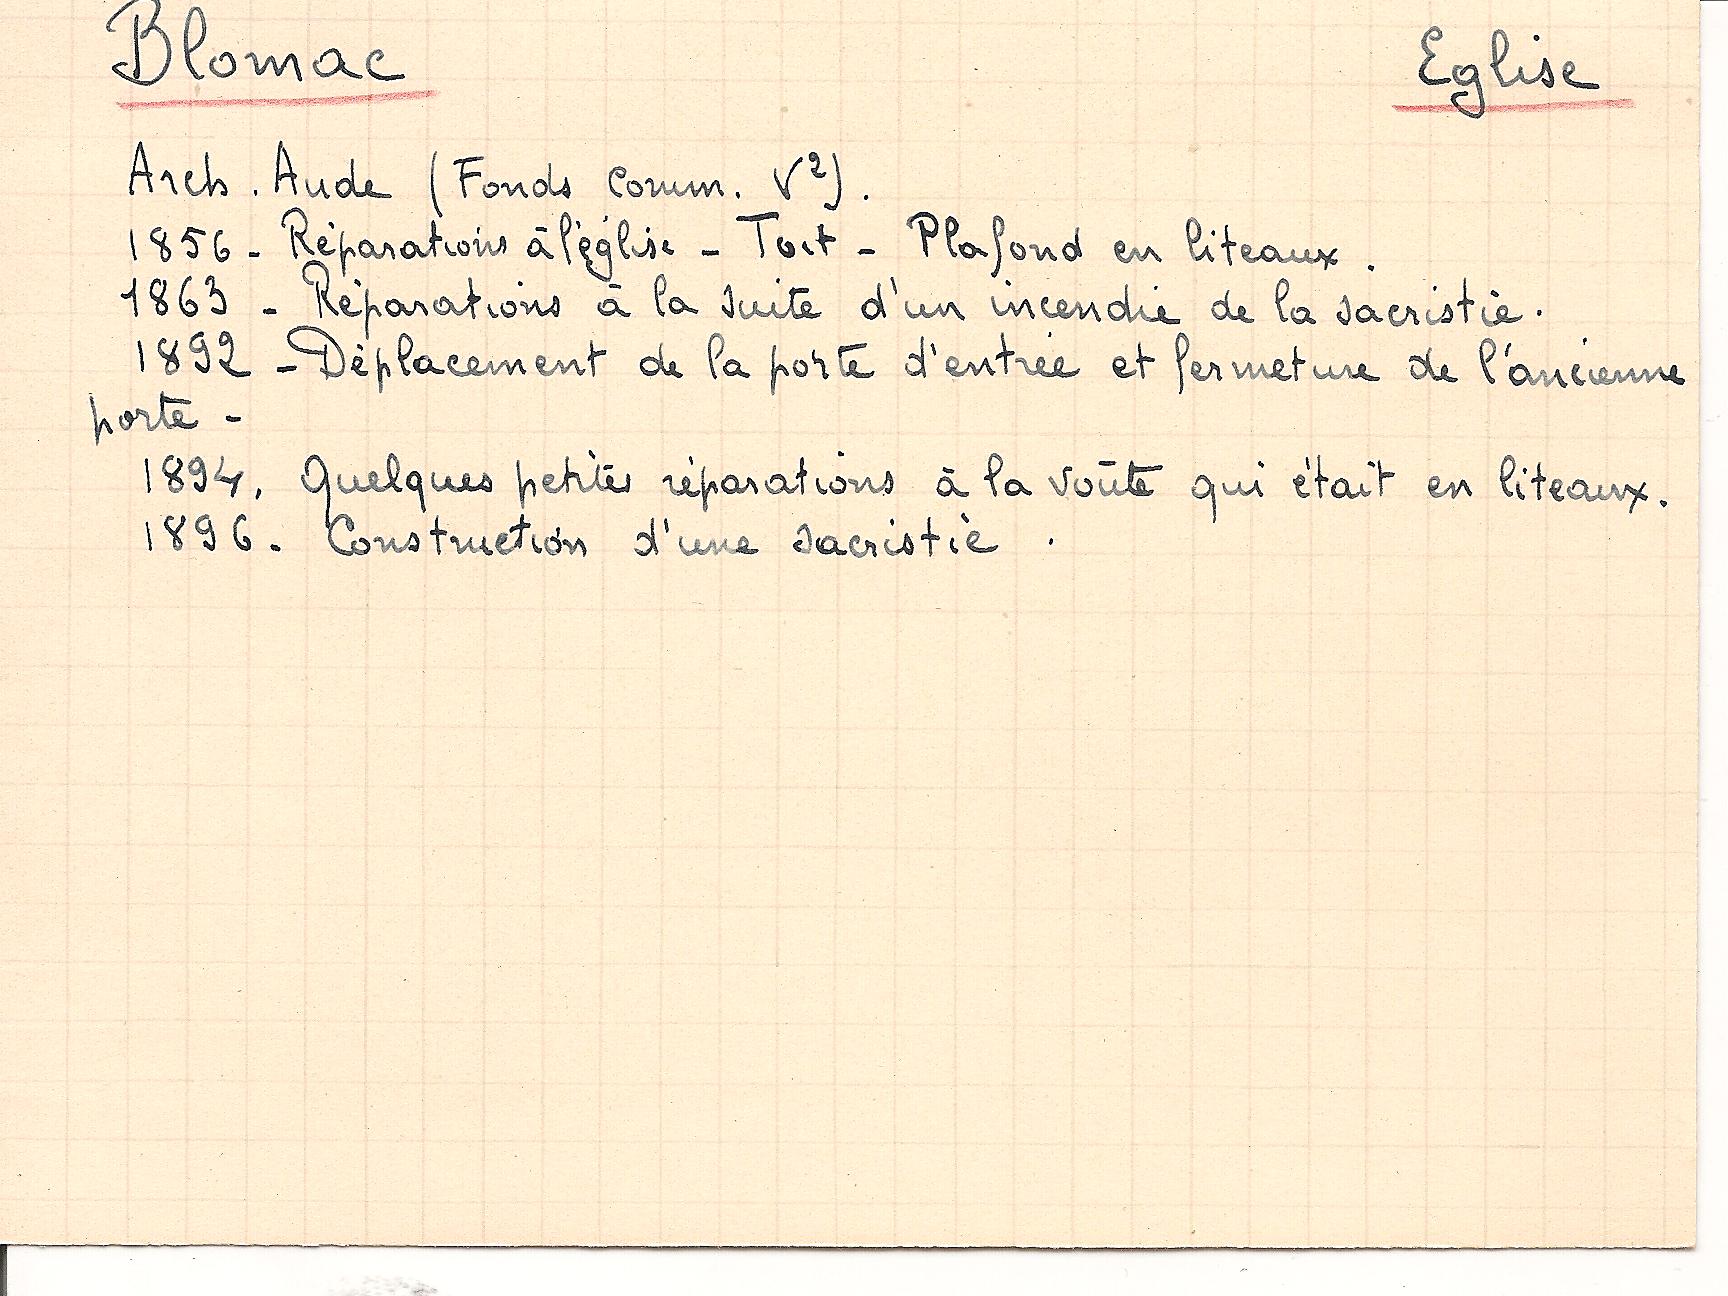 Blomac Eglise
Arch. Aude (Fonds Comm. V²).
1856 - Réparations à l'église - Toit - Plafond en liteaux.
1863 - Réparations à la suite d'un incendie de la sacristie.
1892 - Déplacement de la porte d'entrée et fermeture de l'ancienne
porte -
1894. Quelques petites réparations à la voûte qui était en liteaux.
1896. Construction d'une sacristie.